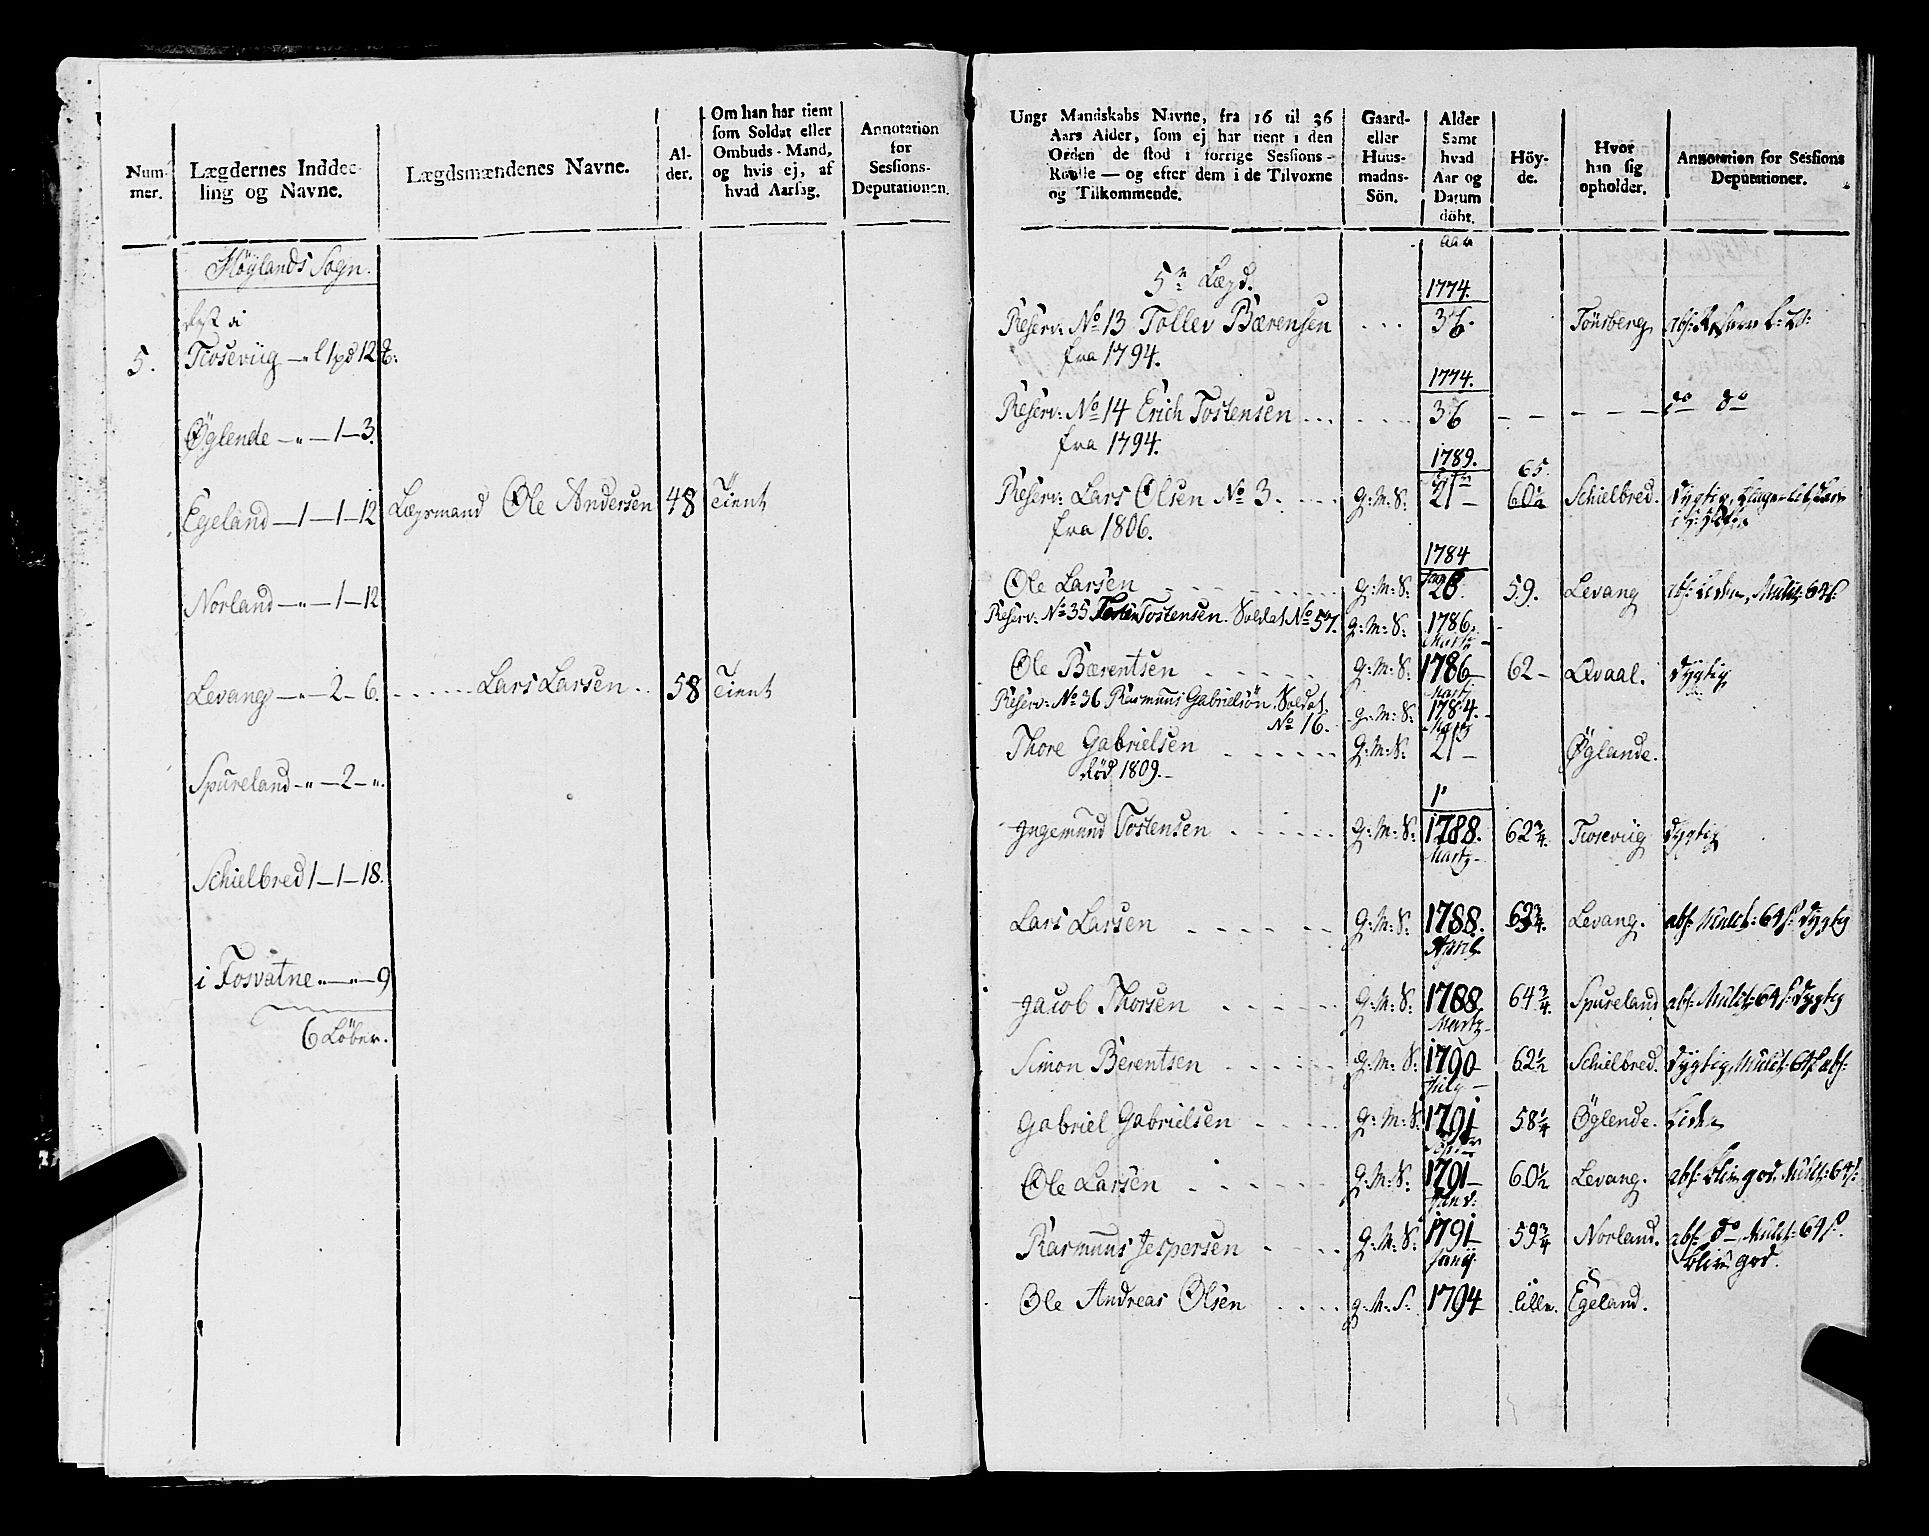 Num-
mer.
Lægdernes Inddee-
ling og Navne.
Lægdsmændenes Navne.
Al-
der.
Om han har tient
som Soldat eller
Ombuds-Mand,
og hvis ej, af
hvad Aarsag.
Annotation
for
Sessions-
Deputationen.
Höylands Sogn.
5.
Tiosevüg — " 1 pd 12 
Øglende — " — 1 — 3.
Egeland — 1 — 1 — 12 Lægsmand Ole Andersen 48 Tient
Norland — " — 1 — 12
Levang — " — 2 — 6. Lars Larsen 58 Tient
Spureland — " — 2 — ".
Schielbred 1 — 1 — 18.
i Fosvatne " — " — 9
6 Løber.
Ungt Mandskabs Navne, fra 16 til 36
Aars Alder, som ej har tient i den
Orden de stod i forrige Sessions-
Roulle — og efter dem i de Tilvoxne
og Tilkommende.
Gaard-
eller
Huus-
mands-
Sön.
Alder
Samt
hvad
Aar og
Datum
döbt.
Höy-
de.
Hvor
han sig
opholder.
Annotation for Sessions
Deputationer.
aar
5te Lægd.
1774.
Reserv: No 13 Tollev Bærensen 36. Tönsberg
fra 1794.
1774.
Reserv: No 14 Erich Tostensen 36 — — — — — do do
fra 1794.
1789.
65
Reserv: Lars Olsen No 3. G: M: S: 21 — 60½ Schielbred. dygtig,
fra 1806.
1784
Ole Larsen G: M: S: 26. 59. Levang abs: Liden, Mulct: 64 s:
Reserv: No 35 Tostensen. Soldat No 57. G: M: S: 1786.
Martz
Ole Bærentsen G: M: S: 1786 — 62 — Qvaal. dygtig
Martz
Reserv: No 36 Rasmuus Gabrielsön, Soldat
No 16. G: M: S: 1784.
Thore Gabrielsen G: M: S: 21 — Øglande.
död 1809.
Jngemund Tostensen G: M: S: 1788. 62¾. Tiosevüg dygtig
Martz
Lars Larsen G: M: S: 1788. 63¾. Levang. abs: Mulct: 64 s: dygtig
April
Jacob Thorsen G: M: S: 1788 64¾. Spureland abs: Mulct: 64 s: dygtig
Martz
Simon Berentsen G: M: S: 1790 62½ Schielbred. dygtig, Mulct: 64 s abs:
July
Gabriel Gabrielsen G: M: S: 1791 58¼ Øglende. Liden
Ole Larsen G: M: S: 1791 — 60½ Levang. abs: bliv god, Mulct: 64 s:
Janv:
Rasmuus Jespersen G: M: S: 1791 59¾ Norland. abs: do, Mulct: 64 s.
bliv god.
Ole Andreas Olsen G: M: S: 1794 lille. Egeland.